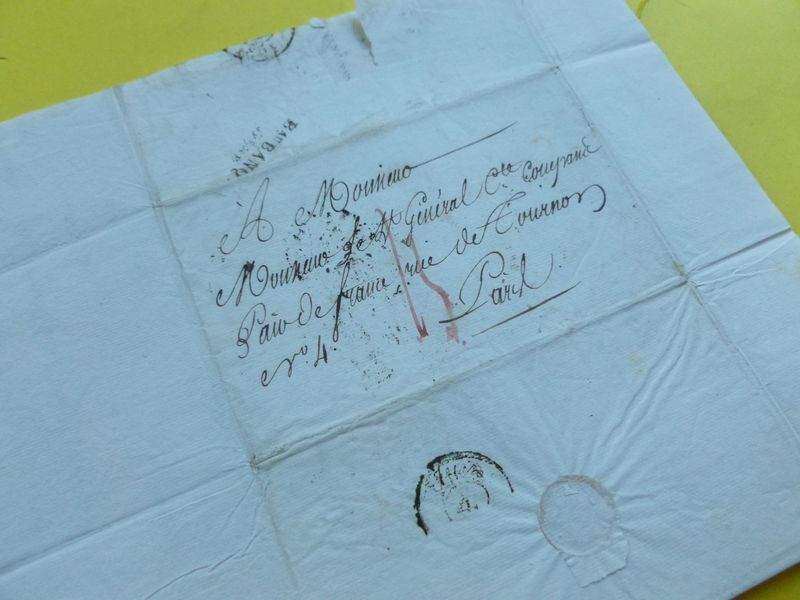 À Monsieur
Monsieur le Lt Général Cte Compans
Pair de france, rue de Tournon
nro 4.
Paris